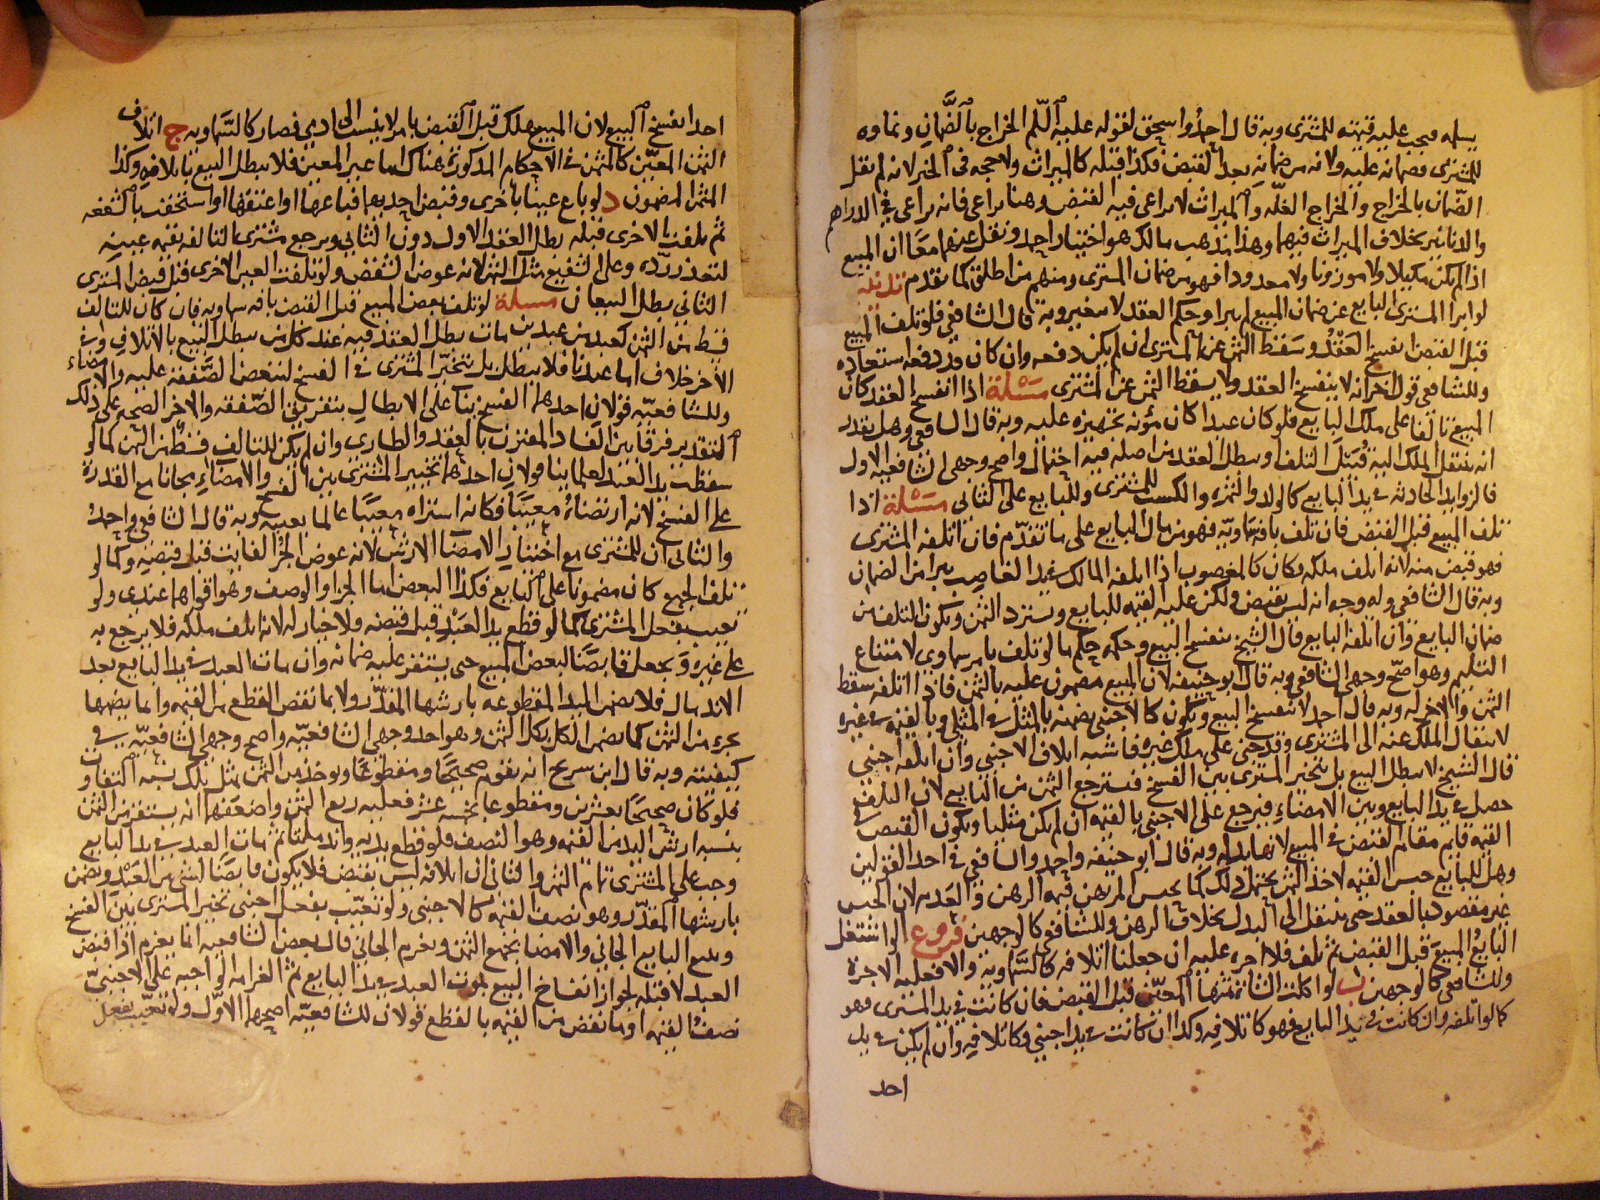 يسلمه فيجب عليه قيمته للمشترى وبه قال احمد واسحق لقوله عليه السلم الخراج بالضمان ونماوه
للمشترى فضمانه عليه ولانه من ضمانه بعد القبض فكذا قبله كالميراث ولا حجه فى الخبر لانه لم يقل
الضمان بالخراج والخراج الغلّه والميراث لا يراعى فيه القبض وهنا يراعى فانه يراعى فى الدراهم
والدنانير بخلاف الميراث فيهما وهذا مذهب مالك هو اختيار احمد ونقل عنهما معًا ان المبيع
اذا لم يكن مكيلا ولا موزونا ولا معدودا فهو من ضمان المشترى ومنهم من اطلق كما تقدم تذنيب
لو ابرا المشترى البايع عن ضمان المبيع لم يبرا وحكم العقد لا يتغير وبه قال الشافعى فلو تلف المبيع
قبل القبض انفسخ العقد وسقط الثمن عن المشترى ان لم يكن دفعه وان كان قد دفعه استعاده
وللشافعى قول اخر انه لا ينفسخ العقد ولا يسقط الثمن عن المشترى مسئلة اذا انفسخ العقد كان
المبيع تالفا على ملك البايع فلو كان عبدا كان مؤنه تجهيزه عليه وبه قال الشافعى وهل يقدر
انه ينتقل الملك اليه قبيل التلف او يبطل العقد من اصله فيه احتمال واصح وجهى الشافعيه الاول
فالزوايد الحادثه فى يد البايع كالولد والثمره والكسب للمشترى وللبايع على الثانى مسئلة اذا
تلف المبيع قبل القبض فان تلف بافة سماويه فهو من مال البايع على ما تقدم فان اتلفه المشترى
فهو قبض منه لانه اتلف ملكه فكان كالمغصوب اذا اتلفه المالك فى يد الغاصب يبرا من الضمان
وبه قال الشافعى وله وجه انه ليس بقبض ولكن عليه القيمه للبايع ويسترد الثمن ويكون التلف من
ضمان البايع وان اتلفه البايع قال الشيخ ينفسخ البيع وحكمه حكم ما لو تلف بامر سماوى لامتناع
التسليم وهو اصح وجهى الشافعى وبه قال ابو حنيفه لان المبيع مضمون عليه بالثمن فاذا اتلفه سقط
الثمن والاخر له وبه قال احمد لا ينفسخ البيع ويكون كالاجنبى يضمنه بالمثل فى المثلى وبالقيمه فى غيره
لانتقال الملك عنه الى المشترى وقد جنى على ملك غيره فاشبه اتلاف الاجنبى وان اتلفه اجنبى
قال الشيخ لا يبطل البيع بل يتخير المشترى بين الفسخ فيسترجع الثمن من البايع لان التلف
حصل فى يد البايع وبين الامضاء فيرجع على الاجنبى بالقيمه ان لم يكن مثليا ويكون القبض فى
القيمه قايم مقام القبض فى المبيع لانها بدله وبه قال ابو حنيفه واحمد والشافعى فى احد القولين
وهل للبايع حبس القيمه لاخذ الثمن يحتمل ذلك كما يحبس المرتهن قيمه الرهن والعدم لان الحبس
غير مقصود بالعقد حتى ينتقل الى البدل بخلاف الرهن وللشافعى كالوجهين فروع ا لو استغل
البايع المبيع قبل القبض ثم تلف فلا اجره عليه ان جعلنا اتلافه كالسماويه والا فعليه الاجرة
وللشافعى كالوجهين ب لو اكلت الشاة ثمنها المعين قبل القبض فان كانت فى يد المشترى فهو
كما لو اتلفه وان كانت فى يد البايع فهو كاتلافه وكذا ان كانت فى يد اجنبى فكاتلافه وان لم يكن فى يد
احد
احد انفسخ البيع لان المبيع هلك قبل القبض بامر لا ينسب الى ادمى فصار كالسماويه ج اتلاف
الثمن المعين كالمثمن فى الاحكام المذكورة هناك اما غير المعين فلا يبطل البيع باتلافه وكذا
الثمن المضمون د لو باع عينا باخرى وقبض احديهما فباعها او اعتقها او استحقت بالشفعه
ثم تلفت الاخرى قبله بطل العقد الاول دون الثانى ويرجع مشترى التالفه بقيمه عينه
لتعذر رده وعلى الشفيع مثل الثمن لانه عوض الشقص ولو تلفت العين الاخرى قبل قبض المشترى
الثانى بطل البيعان مسئلة لو تلف بعض المبيع قبل القبض بافه سماويه فان كان للتالف
قسط من الثمن كعبد من عبدين مات بطل العقد فيه عند كل من يبطل البيع بالاتلاف وفى
الاخر خلاف اما عندنا فلا يبطل بل يتخير المشترى فى الفسخ لتبعض الصفقه عليه والامضاء
وللشافعيه قولان احدهما الفسخ بنا على الابطال بتفريق الصفقه والاخر الصحه على ذلك
التقدير فرقا بين الفساد المقترن بالعقد والطارى وان لم يكن للتالف قسط من الثمن كما لو
سقطت يد العبد لعلماينا قولان احدهما تخيير المشترى بين الفسخ والامضاء مجانا مع القدرة
على الفسخ لانه ارتضاه معيبا فكانه اشتراه معيبا عالما بعيبه وبه قال الشافعى واحمد
والثانى ان للمشترى مع اختيار الامضا الارش لانه عوض الجزء الفايت قبل قبضه وكما لو
تلف الجميع كان مضمونا على البايع فكذا البعض اما الجزا او الوصف وهو اقواهما عندى ولو
تعيب بفعل المشترى كما لو قطع يد العبد قبل قبضه فلا خيار له لانه اتلف ملكه فلا يرجع به
على غيره ويجعل قابضا لبعض المبيع حتى يستقر عليه ضمانه وان مات العبد فى يد البايع بعد
الاندمال فلا يضمن اليد المقطوعه بارشها المقدر ولا بما نقص القطع من القيمه وانما يضمنها
بجزء من الثمن كما يضمن الكل بكل الثمن وهو احد وجهى الشافعيه واصح وجهى الشافعيه فى
كيفيته وبه قال ابن سريج انه يقوم صحيحا ومقطوعا ويوخذ من الثمن بمثل تلك نسبه التفاوت
فلو كان صحيحا بعشرين ومقطوعا بخمسه عشر فعليه ربع الثمن واضعفهما انه يستقر من الثمن
بنسبه ارش اليد من القيمه وهو النصف فلو قطع يديه واندملتا ثم مات العبد فى يد البايع
وجب على المشترى تمام الثمن والثانى ان اتلافه ليس بقبض فلا يكون قابضا لشى من العبد ويضمن
بارشها المقدر وهو نصف القيمه كالاجنبى ولو تعيب بفعل اجنبى تخير المشترى بين الفسخ
ويتبع البايع الجانى والامضا بجميع الثمن ويغرم الجانى قال بعض الشافعيه انما يغرم اذا قبض
العبد لا قبله لجواز انفساخ البيع بموت العبد فى يد البايع ثم الغرامه الواجبه على الاجنبى
نصف القيمه او ما نقص من القيمه بالقطع قولان للشافعيه اصحهما الاول ولو تعيب بفعل